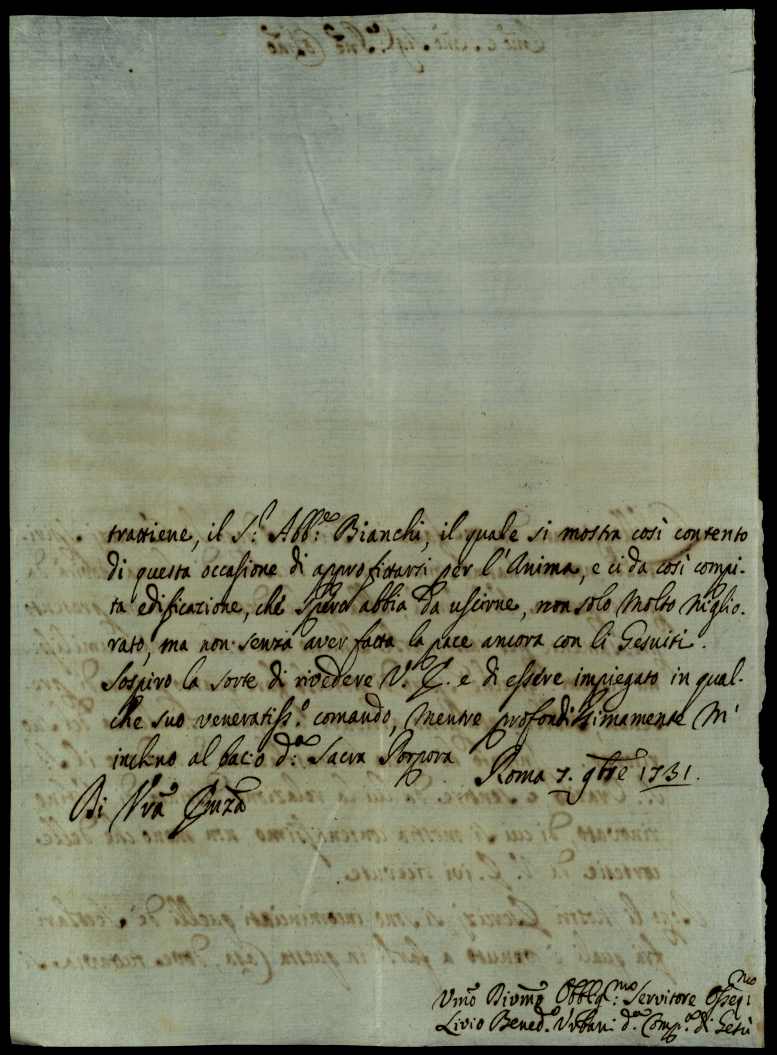 trattiene, il S.r Abb.e Bianchi, il quale si mostra così contento
di questa occasione di approfittarsi per l'Anima, e ci da così compi-
ta edificazione, che spero abbia da uscirne, non solo molto miglio-
rato, ma non senza aver fatta la pace ancora con li Gesuiti.
Sospiro la sorte di rivedere V.a E. e di essere impiegato in qual-
che suo veneratiss.o comando, mentre profondissimamente m'
inchino al bacio d.a Sacra Porpora
Roma 7. 9bre 1731.
Di Vra Emza
Umo Divmo Obblg.mo Servitore Osseq.mo
Livio Bened.o Urbani d.a Comp.a di Gesù